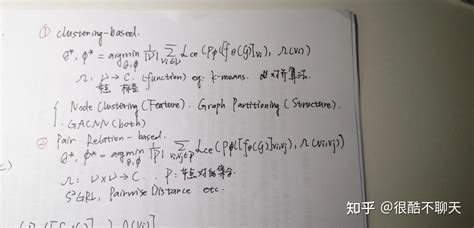 ① clustering-based.
θ*, φ* = argmin θ,φ 1/|V| Σ vi∈V Lce (Pφ([fθ(G)]vi), Ω(vi))
Ω: V → C. (function) eg: k-means.
节点 标签
{ Node Clustering (Feature). Graph Partitioning (Structure).
GACNN (both)
② Pair Relation-based.
θ*, φ* = argmin θ,φ 1/|P| Σ vi,vj∈P Lce (Pφ([fθ(G)]vi,vj), Ω(vi,vj))
Ω: V×V → C. P: 节点对的集合.
S²GRL, Pairwise Distance etc.
知乎 @很酷不聊天